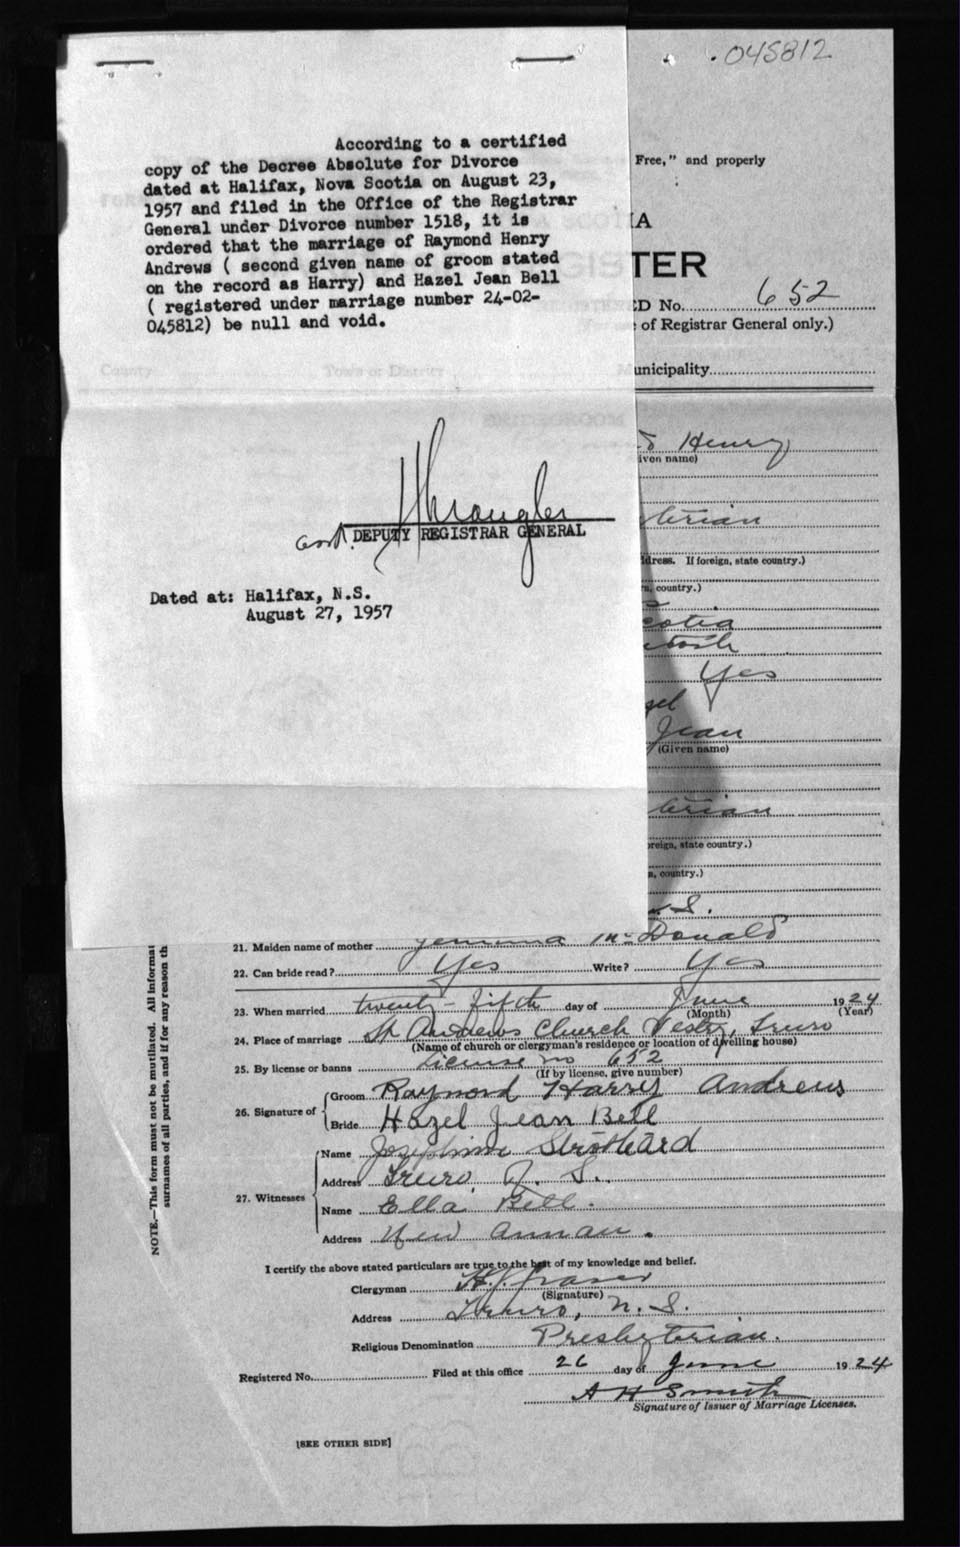 .045812
According to a certified
copy of the Decree Absolute for Divorce
dated at Halifax, Nova Scotia on August 23,
1957 and filed in the Office of the Registrar
General under Divorce number 1518, it is
ordered that the marriage of Raymond Henry
Andrews ( second given name of groom stated
on the record as Harry) and Hazel Jean Bell
( registered under marriage number 24-02-
045812) be null and void.
DEPUTY REGISTRAR GENERAL
Dated at: Halifax, N.S.
August 27, 1957
Free," and properly
TER
No. 652
of Registrar General only.)
unicipality
Henry
iven name)
terian
dress. If foreign, state country.)
, country.)
cotia
Yes
Jean
(Given name)
terian
oreign, state country.)
, country.)
S.
21. Maiden name of mother Jemima McDonald
22. Can bride read? Yes Write? Yes
23. When married twenty-fifth day of June 1924
(Month) (Year)
24. Place of marriage St Andrews Church Vestry, Truro
(Name of church or clergyman's residence or location of dwelling house)
25. By license or banns License no 652
(If by license, give number)
26. Signature of
Groom Raymond Harry Andrews
Bride Hazel Jean Bell
27. Witnesses
Name Josephine Strothard
Address Truro N. S.
Name Ella Bell.
Address New Annan.
I certify the above stated particulars are true to the best of my knowledge and belief.
Clergyman H. J. Fraser
(Signature)
Address Truro, N. S.
Religious Denomination Presbyterian.
Registered No. Filed at this office 26 day of June 1924
A H Smith
Signature of Issuer of Marriage Licenses.
[SEE OTHER SIDE]
NOTE.—This form must not be mutilated. All informat
surnames of all parties, and if for any reason th